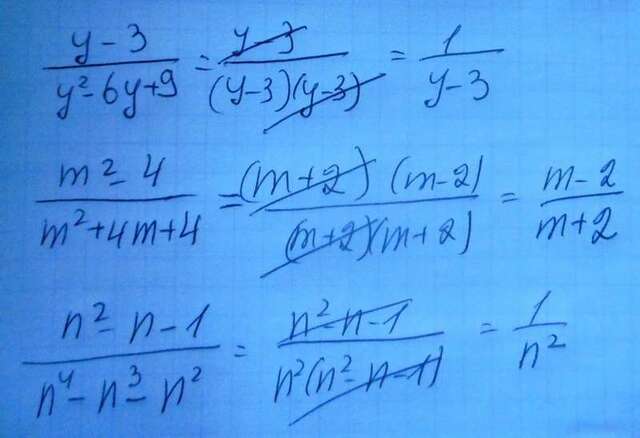 y-3/y²-6y+9 = y-3/(y-3)(y-3) = 1/y-3
m²-4/m²+4m+4 = (m+2)(m-2)/(m+2)(m+2) = m-2/m+2
n²-n-1/n⁴-n³-n² = n²-n-1/n²(n²-n-1) = 1/n²